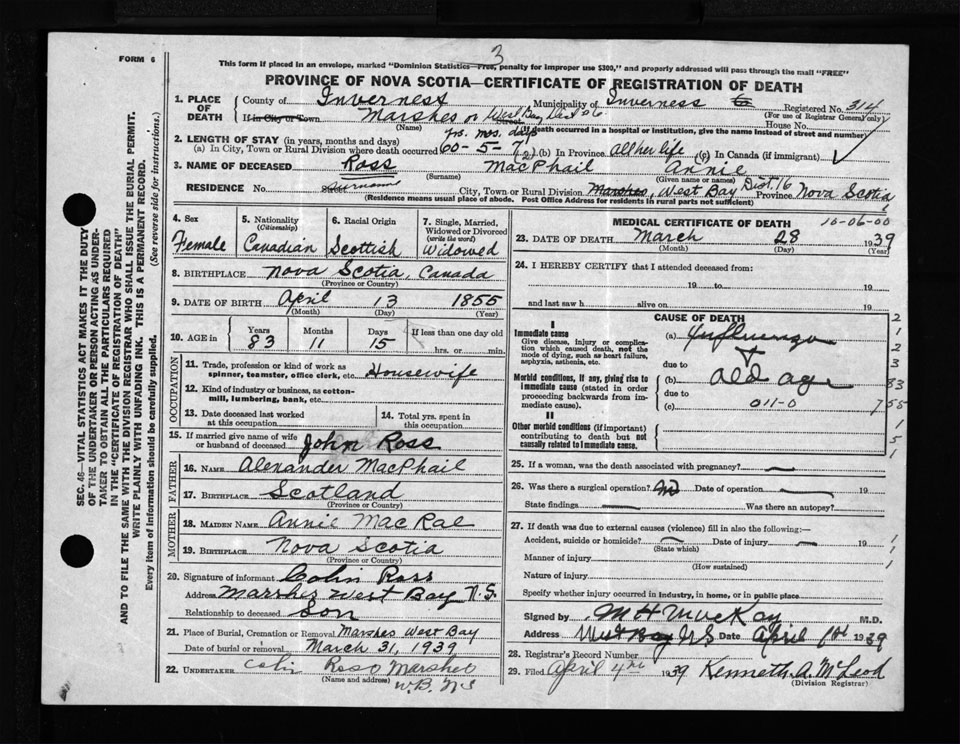 3
FORM 6
This form if placed in an envelope, marked "Dominion Statistics—Free, penalty for improper use $300," and properly addressed will pass through the mail "FREE"
PROVINCE OF NOVA SCOTIA—CERTIFICATE OF REGISTRATION OF DEATH
1. PLACE OF DEATH
County of Inverness Municipality of Inverness Registered No. 314
(For use of Registrar General only)
If in City or Town Marshes or West Bay Dist 06 House No.
(Name) Street
(If death occurred in a hospital or institution, give the name instead of street and number)
2. LENGTH OF STAY (in years, months and days) yrs. mos. dys
(a) In City, Town or Rural Division where death occurred 60-5-7 (b) In Province All her life (c) In Canada (if immigrant)
3. NAME OF DECEASED Ross MacPhail Annie
(Surname) (Given name or names)
RESIDENCE No. Surname City, Town or Rural Division Marshes, West Bay Dist. 16 Province Nova Scotia
(Residence means usual place of abode. Post Office Address for residents in rural parts not sufficient)
4. Sex
Female
5. Nationality (Citizenship)
Canadian
6. Racial Origin
Scottish
7. Single, Married, Widowed or Divorced (write the word)
Widowed
8. BIRTHPLACE Nova Scotia, Canada
(Province or Country)
9. DATE OF BIRTH April 13 1855
(Month) (Day) (Year)
10. AGE in Years Months Days If less than one day old
83 11 15 hrs. or min.
OCCUPATION
11. Trade, profession or kind of work as spinner, teamster, office clerk, etc. Housewife
12. Kind of industry or business, as cotton-mill, lumbering, bank, etc.
13. Date deceased last worked at this occupation
14. Total yrs. spent in this occupation
15. If married give name of wife or husband of deceased John Ross
FATHER
16. NAME Alexander MacPhail
17. BIRTHPLACE Scotland
(Province or Country)
MOTHER
18. MAIDEN NAME Annie MacRae
19. BIRTHPLACE Nova Scotia
(Province or Country)
20. Signature of informant Colin Ross
Address Marshes West Bay N.S.
Relationship to deceased Son
21. Place of Burial, Cremation or Removal Marshes West Bay
Date of burial or removal March 31, 1939
22. UNDERTAKER Colin Ross Marshes
(Name and address) W.B. NS
MEDICAL CERTIFICATE OF DEATH 10-06-00
23. DATE OF DEATH March 28 1939
(Month) (Day) (Year)
24. I HEREBY CERTIFY that I attended deceased from:
19 to 19
and last saw h alive on 19
CAUSE OF DEATH
I
Immediate cause
Give disease, injury or complication which caused death, not the mode of dying, such as heart failure, asphyxia, asthenia, etc.
(a) Influenza
due to
Morbid conditions, if any, giving rise to immediate cause (stated in order proceeding backwards from immediate cause).
(b) old age
due to
(c) 011-0
II
Other morbid conditions (if important) contributing to death but not causally related to immediate cause.
2
1
2
3
83
755
1
5
1
25. If a woman, was the death associated with pregnancy?
26. Was there a surgical operation? No Date of operation 19
State findings Was there an autopsy?
27. If death was due to external causes (violence) fill in also the following:—
Accident, suicide or homicide? Date of injury 19
(State which)
Manner of injury
(How sustained)
Nature of injury
Specify whether injury occurred in industry, in home, or in public place
1
1
1
Signed by M H MacKay M.D.
Address West Bay N S Date April 1st 1939
28. Registrar's Record Number
29. Filed April 4th 1939 Kenneth A. McLeod
(Division Registrar)
SEC. 46—VITAL STATISTICS ACT MAKES IT THE DUTY
OF THE UNDERTAKER OR PERSON ACTING AS UNDER-
TAKER TO OBTAIN ALL THE PARTICULARS REQUIRED
IN THE "CERTIFICATE OF REGISTRATION OF DEATH"
AND TO FILE THE SAME WITH THE DIVISION REGISTRAR WHO SHALL ISSUE THE BURIAL PERMIT.
WRITE PLAINLY WITH UNFADING INK. THIS IS A PERMANENT RECORD.
Every item of information should be carefully supplied. (See reverse side for instructions.)